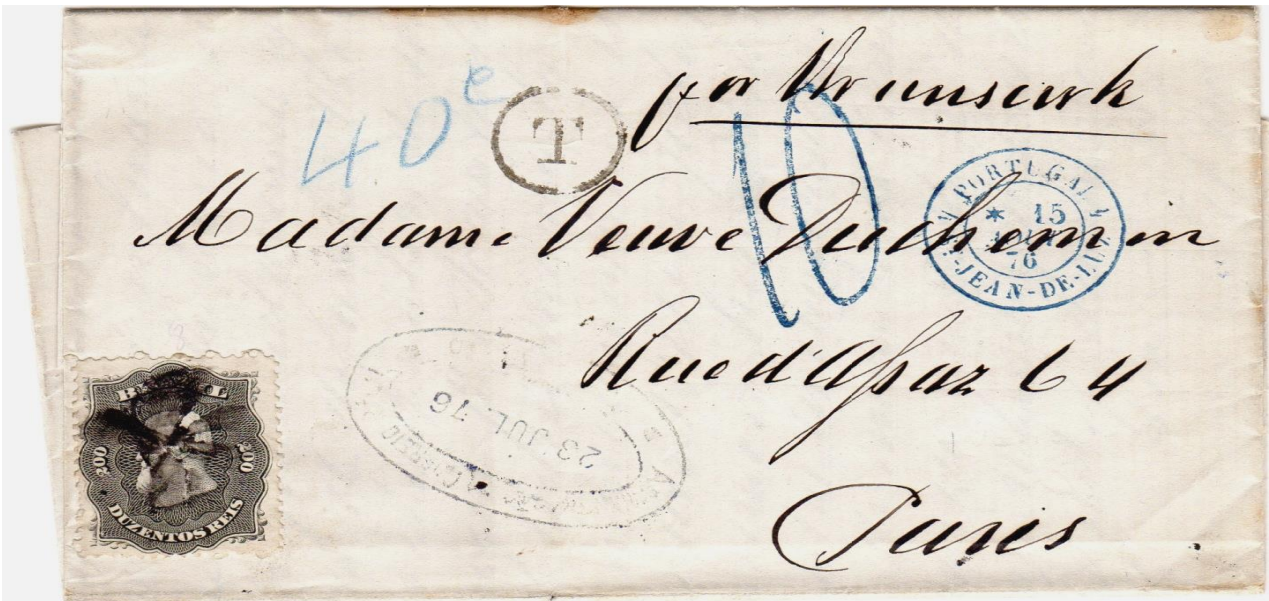 40c
T
por Brunswick
10
PORTUGAL
* 15
76
ST-JEAN-DE-LUZ
Madame Veuve Duchemin
Rue d'Assaz 64
Paris
23 JUL. 76
BRAZIL
200
200
DUZENTOS REIS